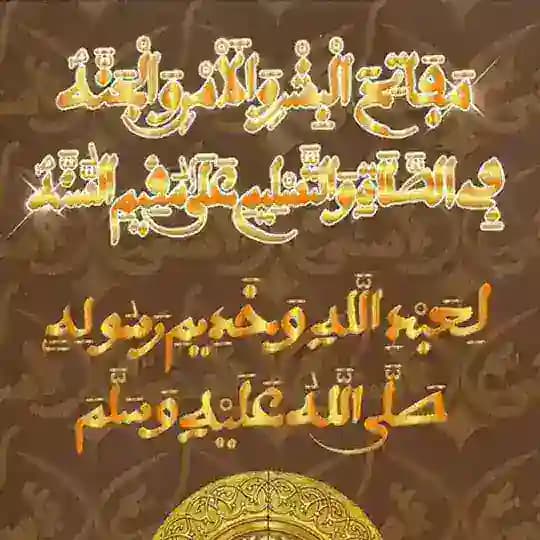 مَفَاتِحُ الْبِشْرِ وَالْأَمْنِ وَالْجَنَّةْ
فِي الصَّلَاةِ وَالتَّسْلِيمِ عَلَى مُقِيمِ السُّنَّةْ
لِعَبْدِ اللَّهِ وَخَدِيمِ رَسُولِهِ
صَلَّى اللَّهُ عَلَيْهِ وَسَلَّمَ